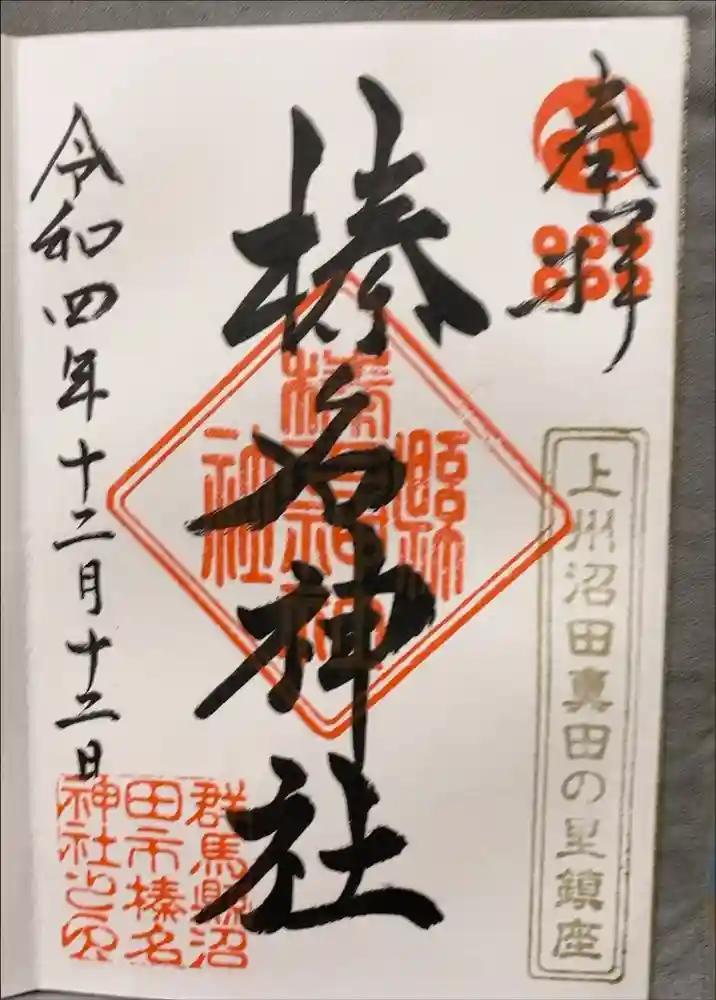 奉拝
上州沼田真田の里鎮座
榛名神社
令和四年十二月十二日
群馬縣沼
田市榛名
神社之印